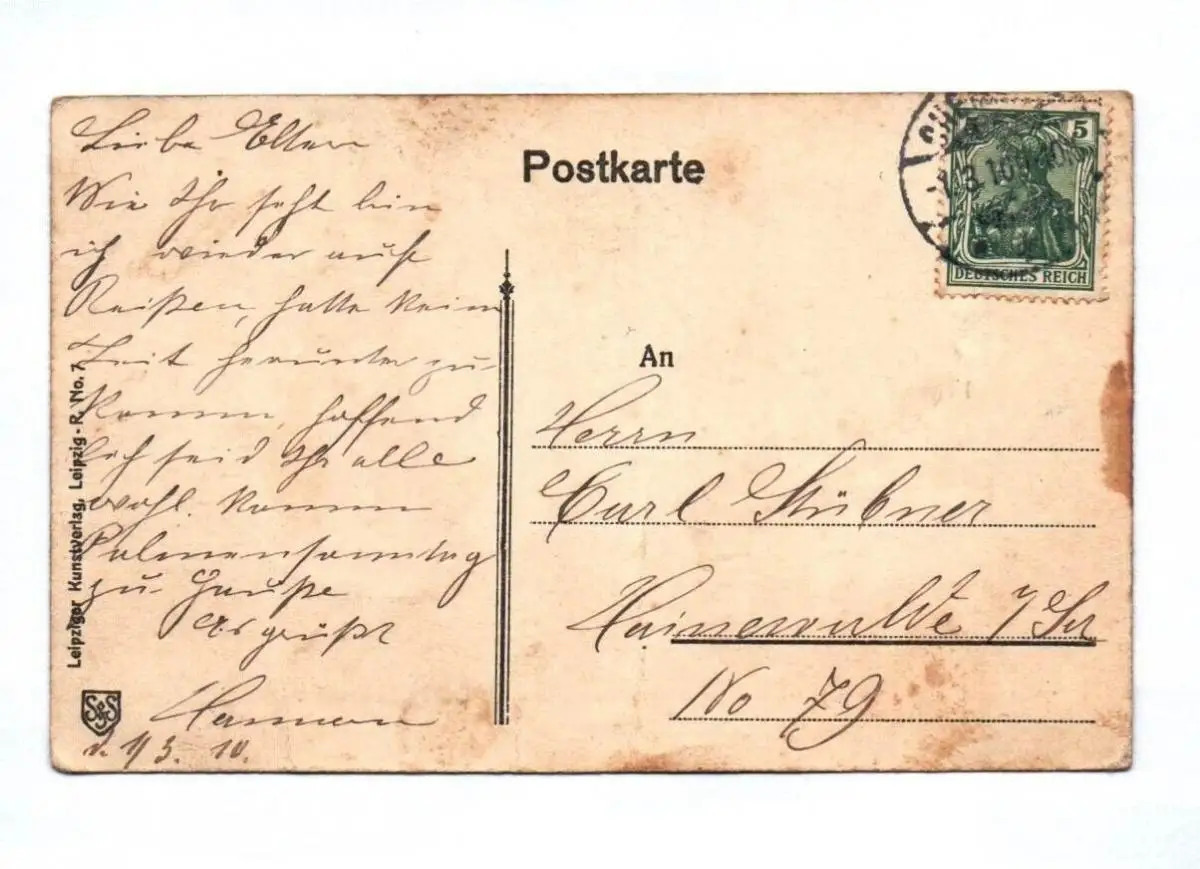 Liebe Eltern
Wie Ihr seht bin
ich wieder auf
Reißen, hatte kein
Zeit herunter zu
kommen, hoffend
lich seid Ihr alle
wohl. komme
Palmensonntag
zu Hauße
Es grüßt
d. 1/3. 10.
Leipziger Kunstverlag, Leipzig-R. No. 7
S&S
Postkarte
5 5
DEUTSCHES REICH
1.3.10
An
Herrn
Carl Stübner
Hainewalde i/Sa
No 79